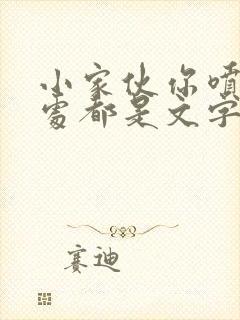 小家伙你噴
處都是文字
赛迪